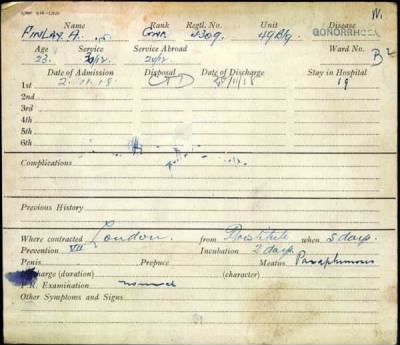 Name Rank Regtl. No. Unit Disease
FINLAY. A. Gnr. 4309 GONORRHOEA
Age Service Service Abroad Ward No.
23. 30/12 24/12 B 2
Date of Admission Disposal Date of Discharge Stay in Hospital
1st 2.11.18 /11/18 19
2nd
3rd
4th
5th
6th
Complications
Previous History
Where contracted London. from Prostitute when 5 days.
Prevention VII Incubation 2 days
Penis Prepuce Meatus
charge (duration) (character)
P.R. Examination
Other Symptoms and Signs